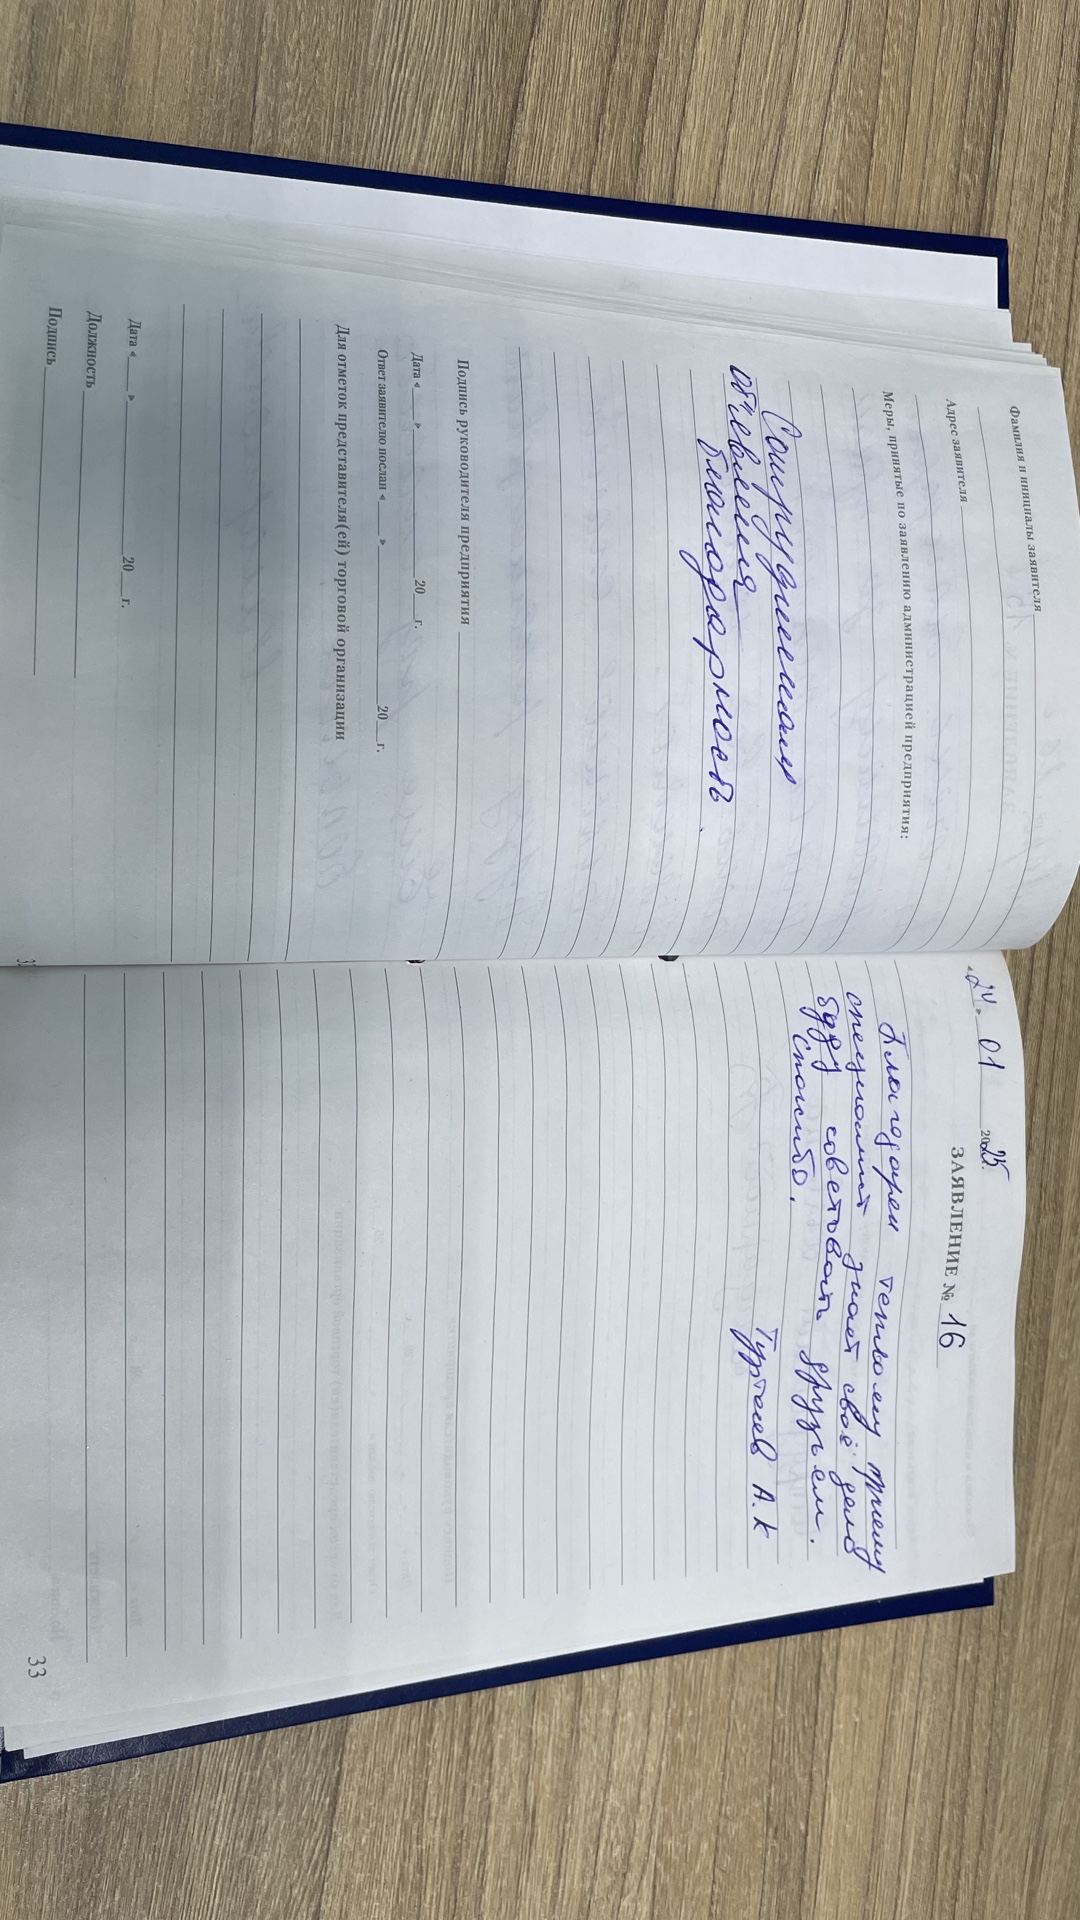 Фамилия и инициалы заявителя
Адрес заявителя
Меры, принятые по заявлению администрацией предприятия:
Сотрудникам
объявлена
благодарность.
Подпись руководителя предприятия
Дата «____»____________20___г.
Ответ заявителю послан «____»____________20___г.
Для отметок представителя(ей) торговой организации
Дата «____»____________20___г.
Должность
Подпись
«24» 01 2025г.
ЗАЯВЛЕНИЕ № 16
Благодарен теплому приему
специалист знает своё дело
буду советовать друзьям.
Спасибо.
А.К
33